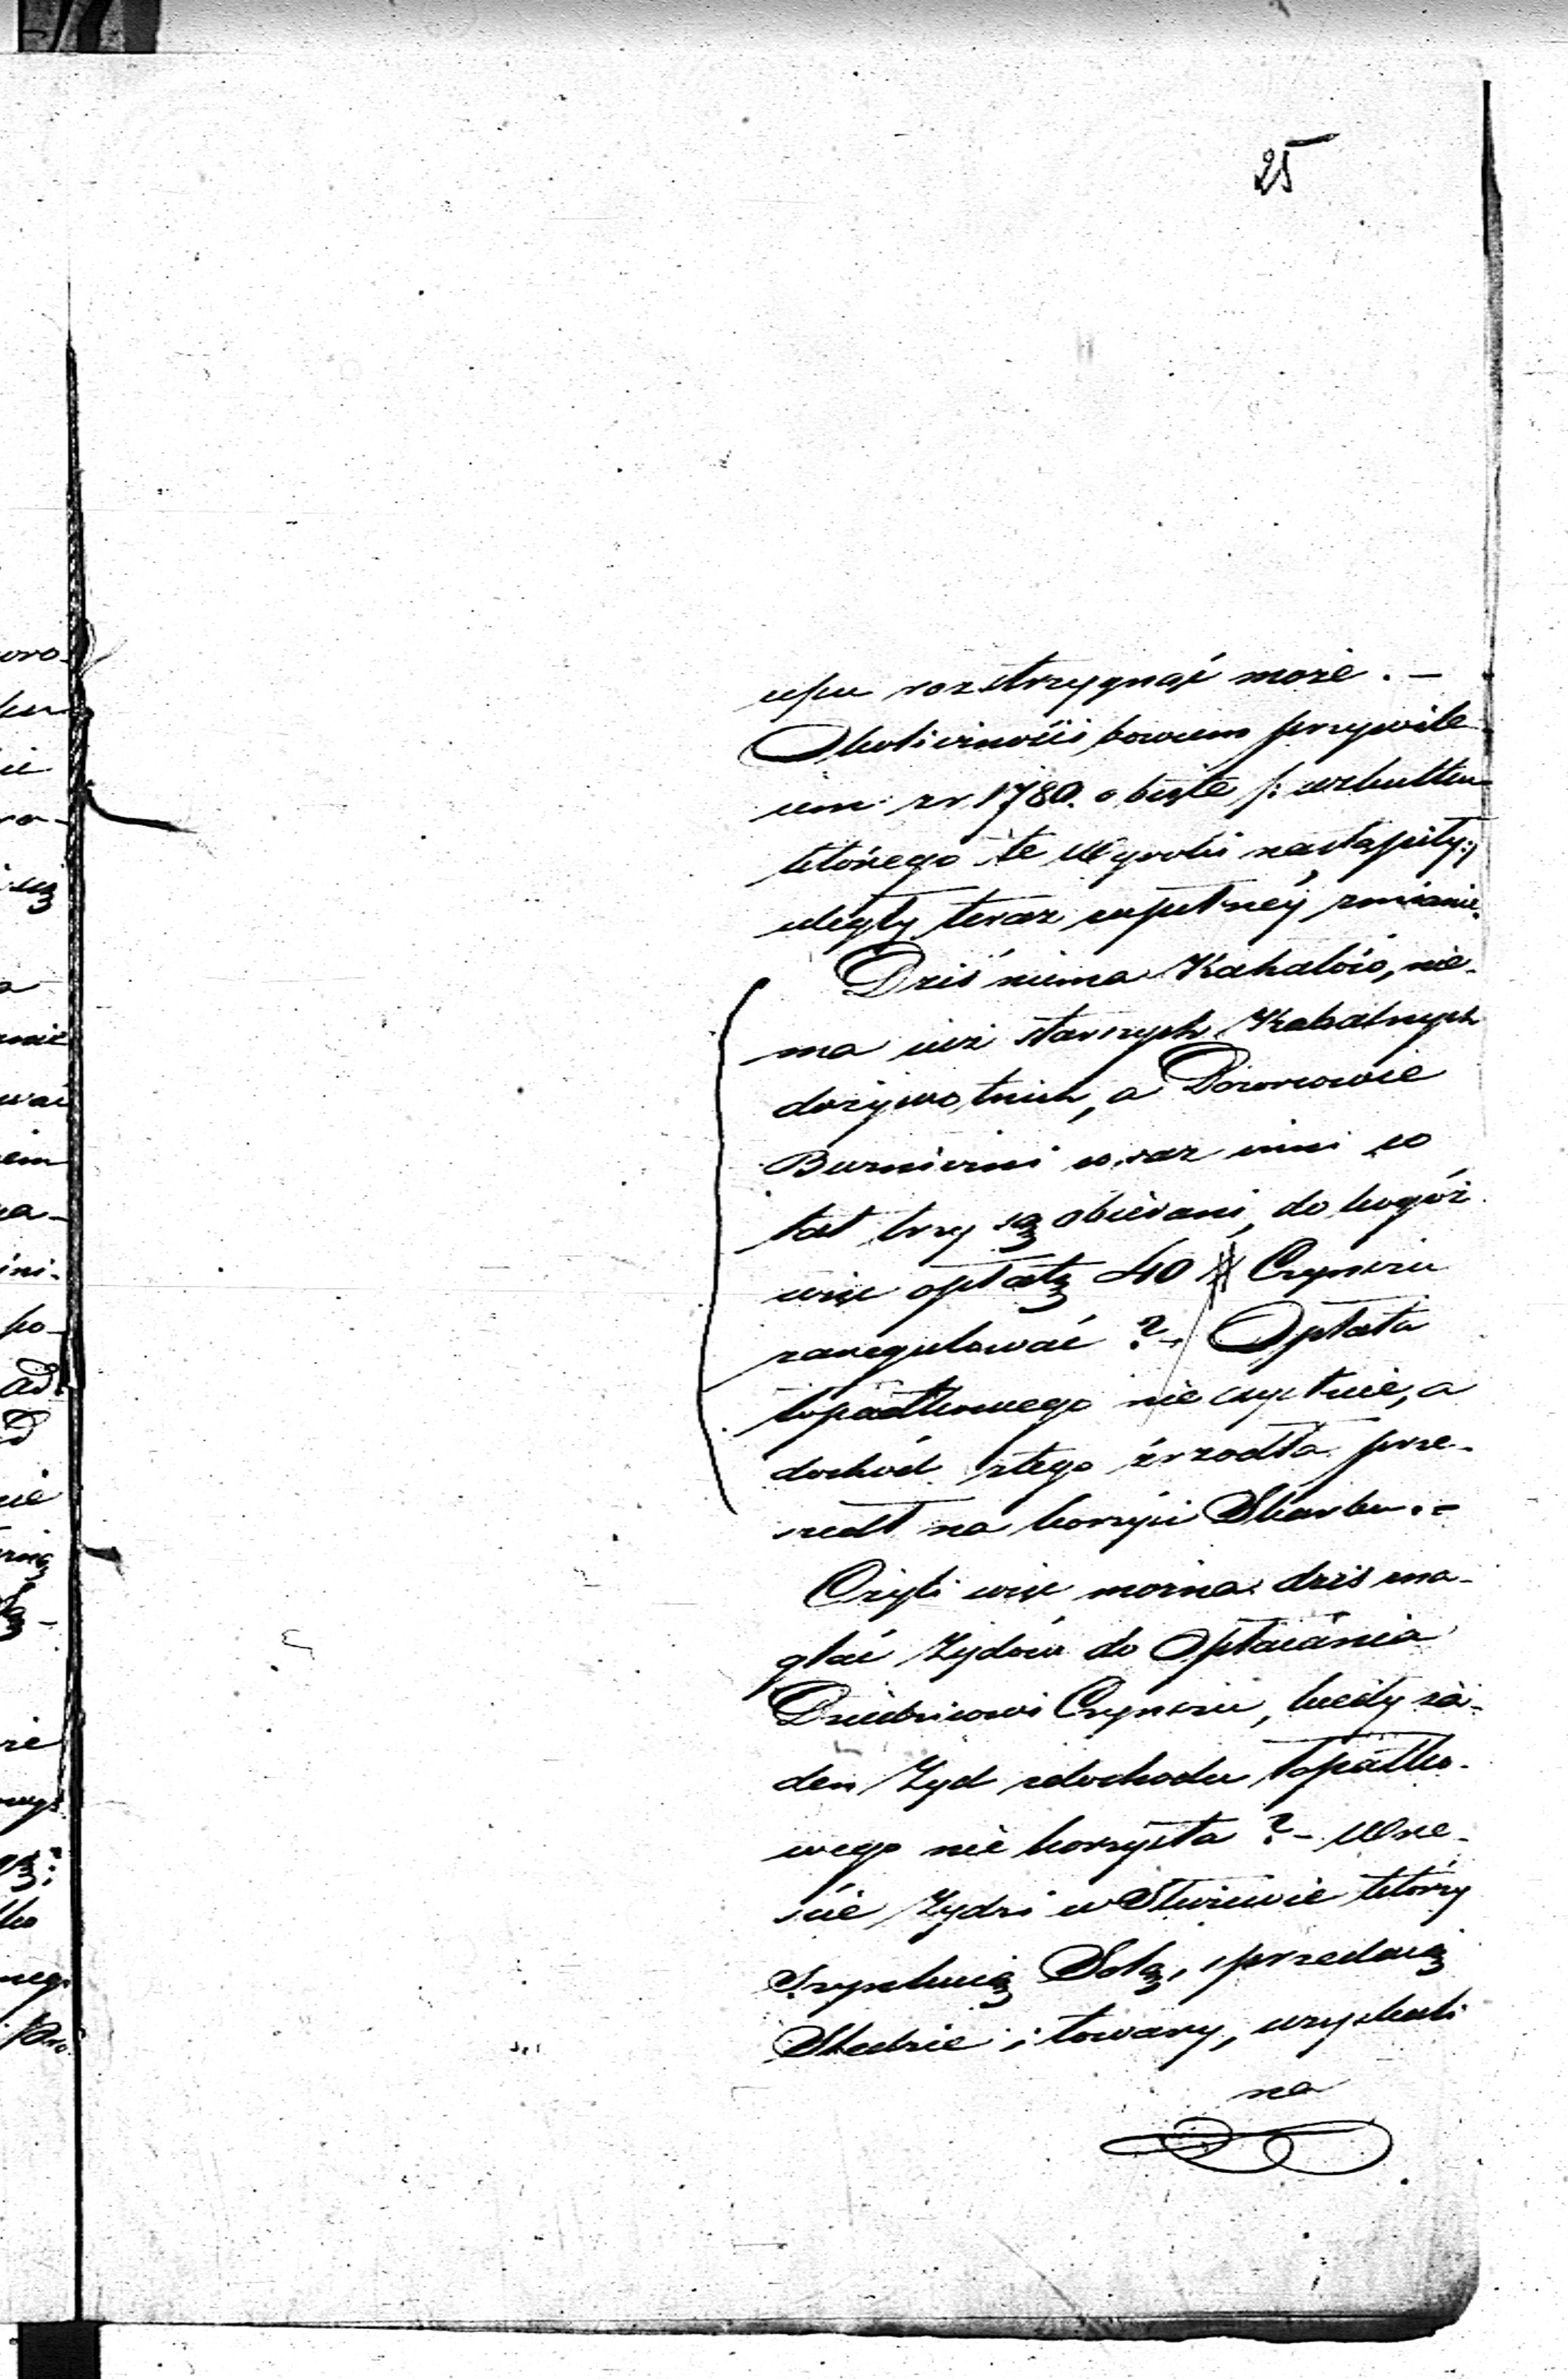 25
upu rozstrzygnąć może. —
Okoliczności bowiem przywile-
iem z r. 1780. obięte /: wskutku
którego te Wyroki nastąpiły :/
uległy teraz zupełney zmianie.
Dziś niema Kahałów, nie-
ma iuż starszych Kahalnych
dożywotnich, a Dozorcowie
Bużniczni coraz inni co
lat trzy są obierani, do kogóż
więc opłatę 40 # Czynszu
zaregulować ? – Opłata
łopatkowego nie exystuie, a
dochód z tego źrzodła prze-
szedł na korzyść Skarbu. –
Czyli więc można dziś na-
glać Żydów do Opłacania
Dziedzicowi Czynszu, kiedy ża-
den Żyd z dochodu łopatko-
wego nie korzysta ? – Wre-
ście Żydzi w którzy
Szynkuią Solą, sprzedaią
Śledzie i towary, uzyskali
na